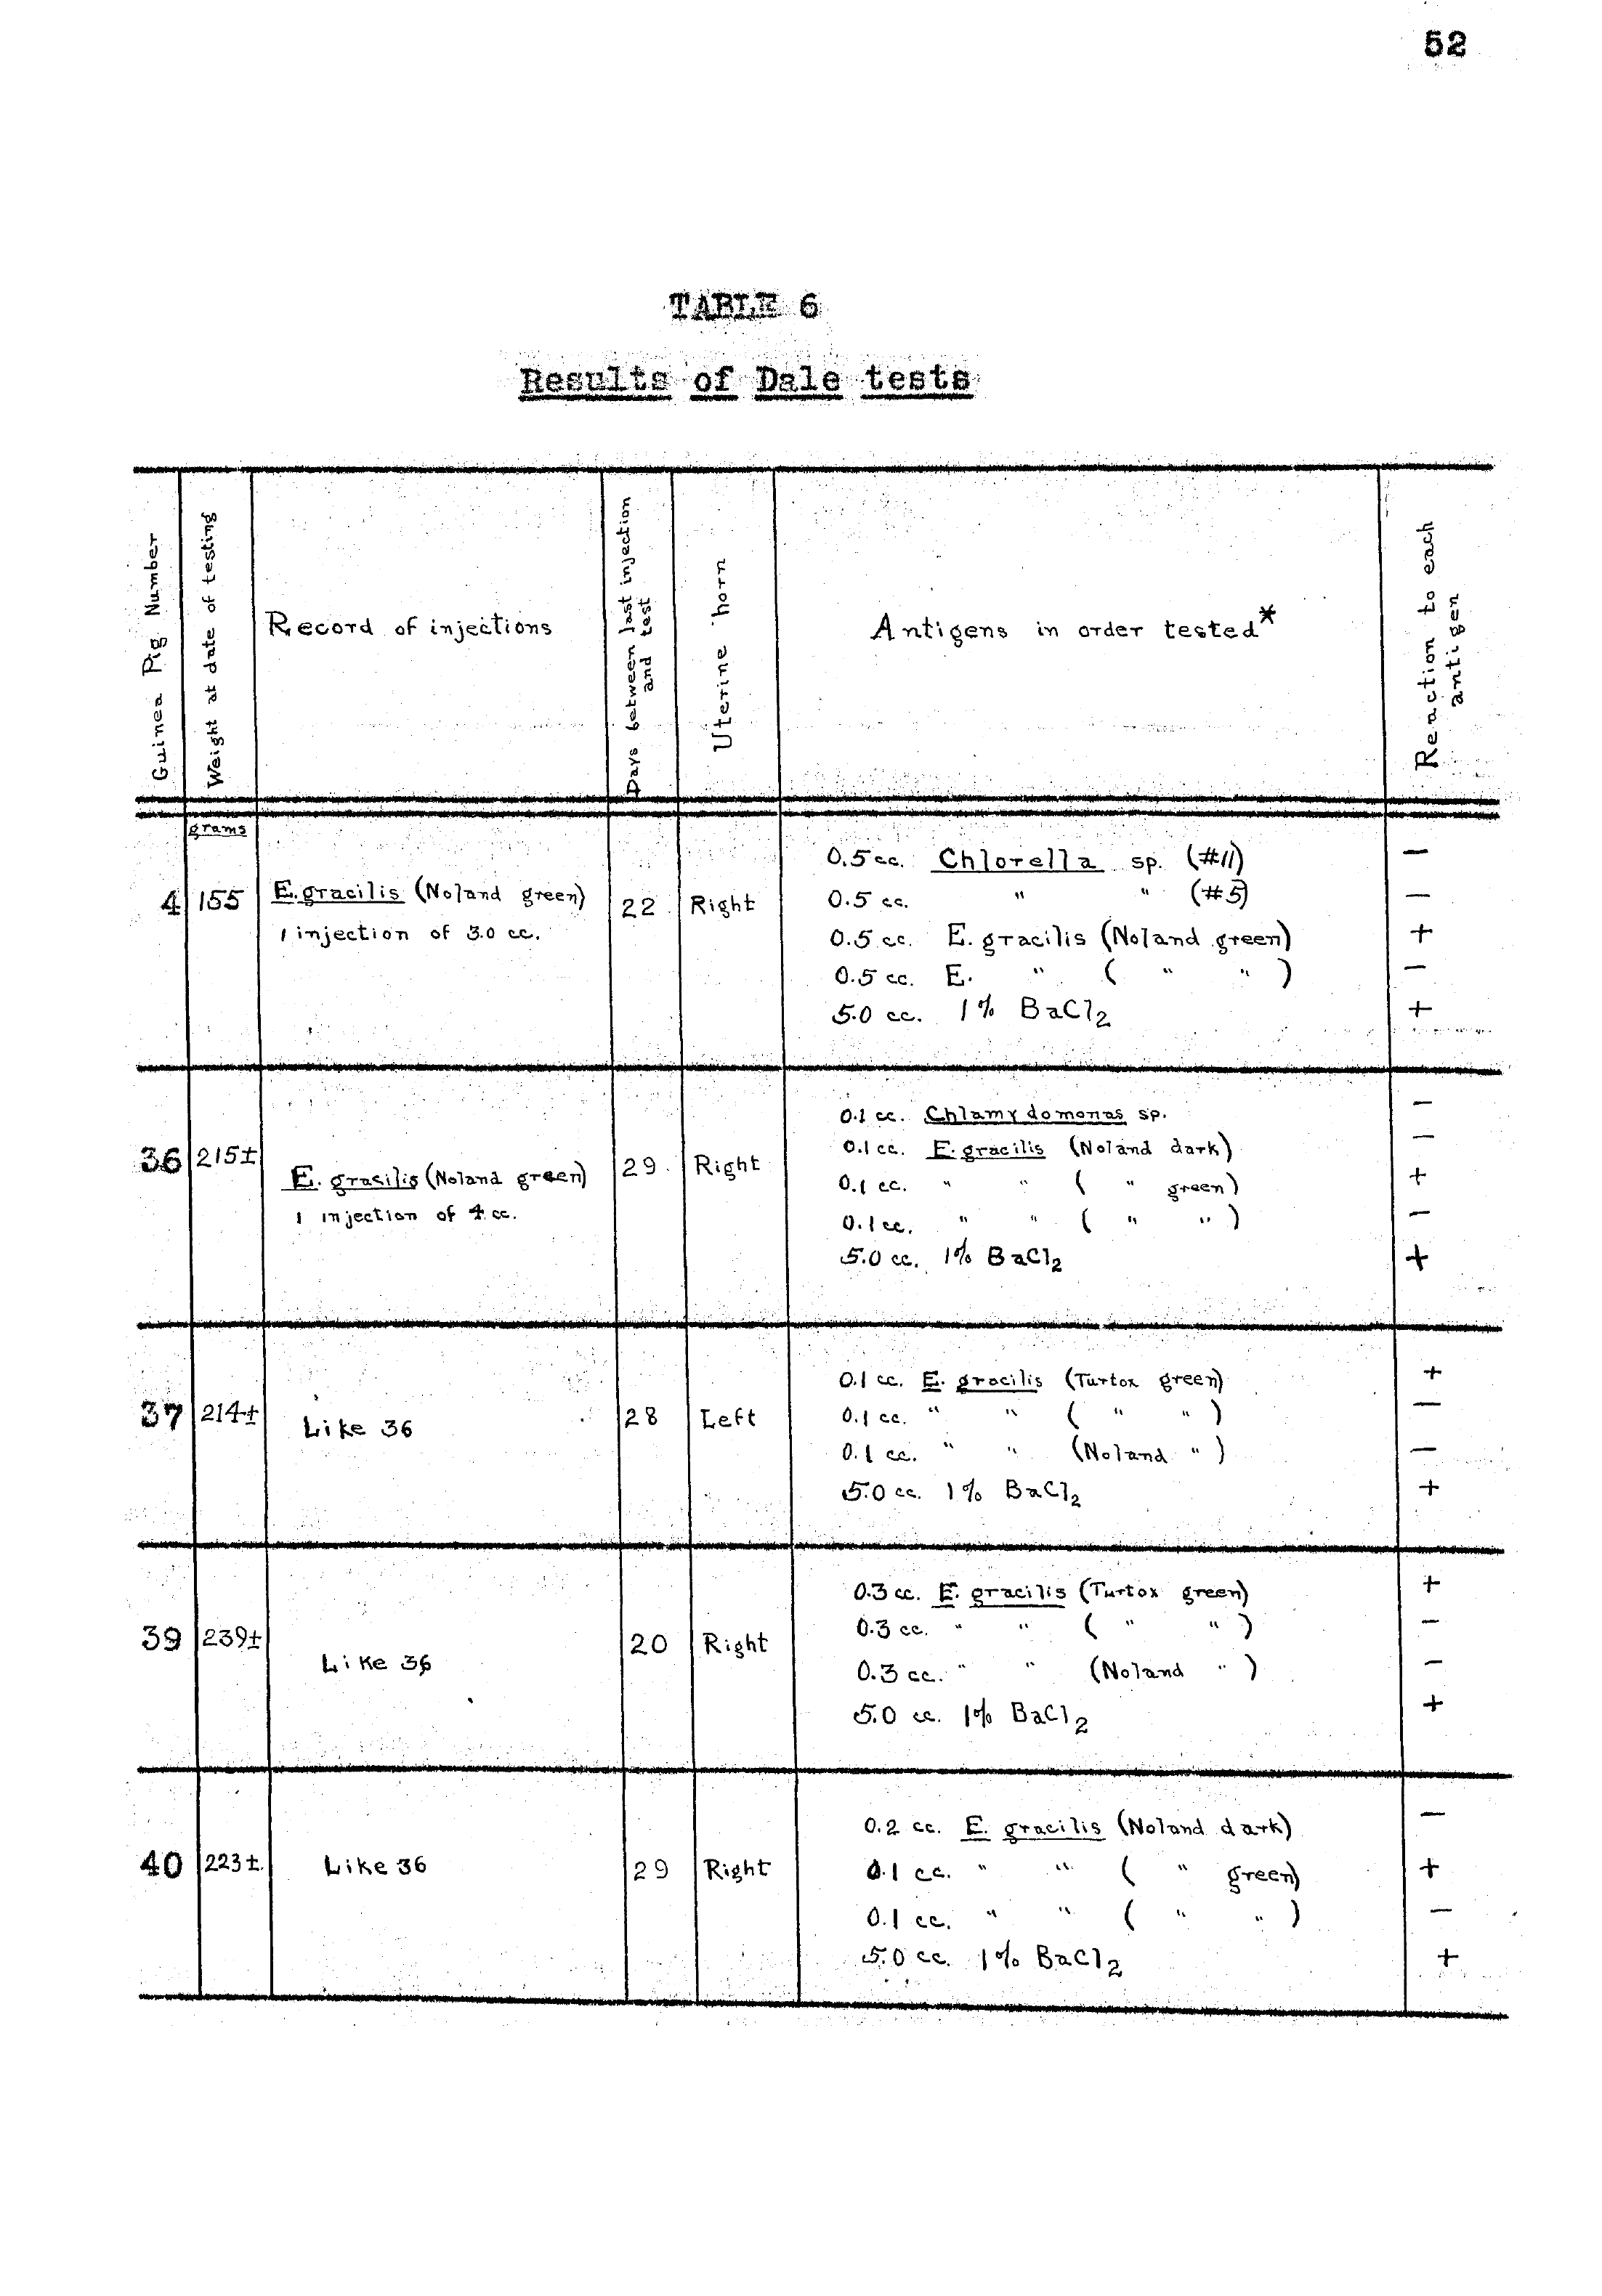 52
TABLE 6
Results of Dale tests
Guinea Pig Number
Weight at date of testing
Record of injections
Days between last injection
and test
Uterine horn
Antigens in order tested*
Reaction to each
antigen
grams
4 155 E. gracilis (Noland green) 22 Right
1 injection of 3.0 cc.
0.5 cc. Chlorella sp. (#11) −
0.5 cc. " " (#5) −
0.5 cc. E. gracilis (Noland green) +
0.5 cc. E. " ( " " ) −
5.0 cc. 1% BaCl2 +
36 215± E. gracilis (Noland green) 29 Right
1 injection of 4 cc.
0.1 cc. Chlamydomonas sp. −
0.1 cc. E. gracilis (Noland dark) −
0.1 cc. " " ( " green) +
0.1 cc. " " ( " " ) −
5.0 cc. 1% BaCl2 +
37 214± Like 36 28 Left
0.1 cc. E. gracilis (Turtox green) +
0.1 cc. " " ( " " ) −
0.1 cc. " " (Noland " ) −
5.0 cc. 1% BaCl2 +
39 239± Like 36 20 Right
0.3 cc. E. gracilis (Turtox green) +
0.3 cc. " " ( " " ) −
0.3 cc. " " (Noland " ) −
5.0 cc. 1% BaCl2 +
40 223±. Like 36 29 Right
0.2 cc. E. gracilis (Noland dark) −
0.1 cc. " " ( " green) +
0.1 cc. " " ( " " ) −
5.0 cc. 1% BaCl2 +